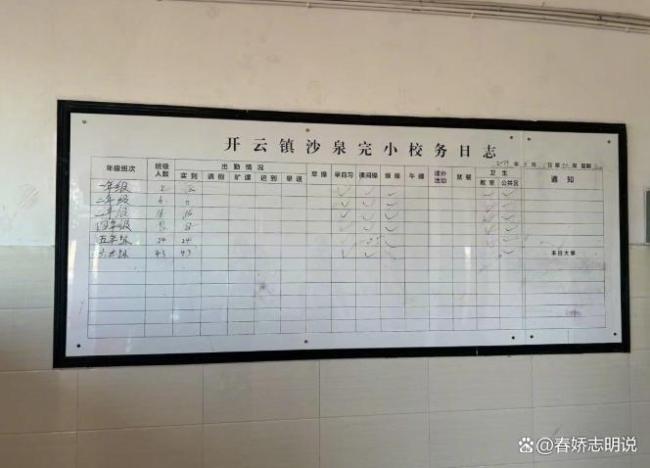 开云镇沙泉完小校务日志
年级班次 班级人数 出勤情况 早操 早自习 课间操 眼操 午操 课外活动 就餐 卫生 通知
实到 请假 旷课 迟到 早退 教室 公共区
一年级 2
二年级
三年级 16
四年级
五年级 24 24
六年级 43 43
本日大事
@春娇志明说